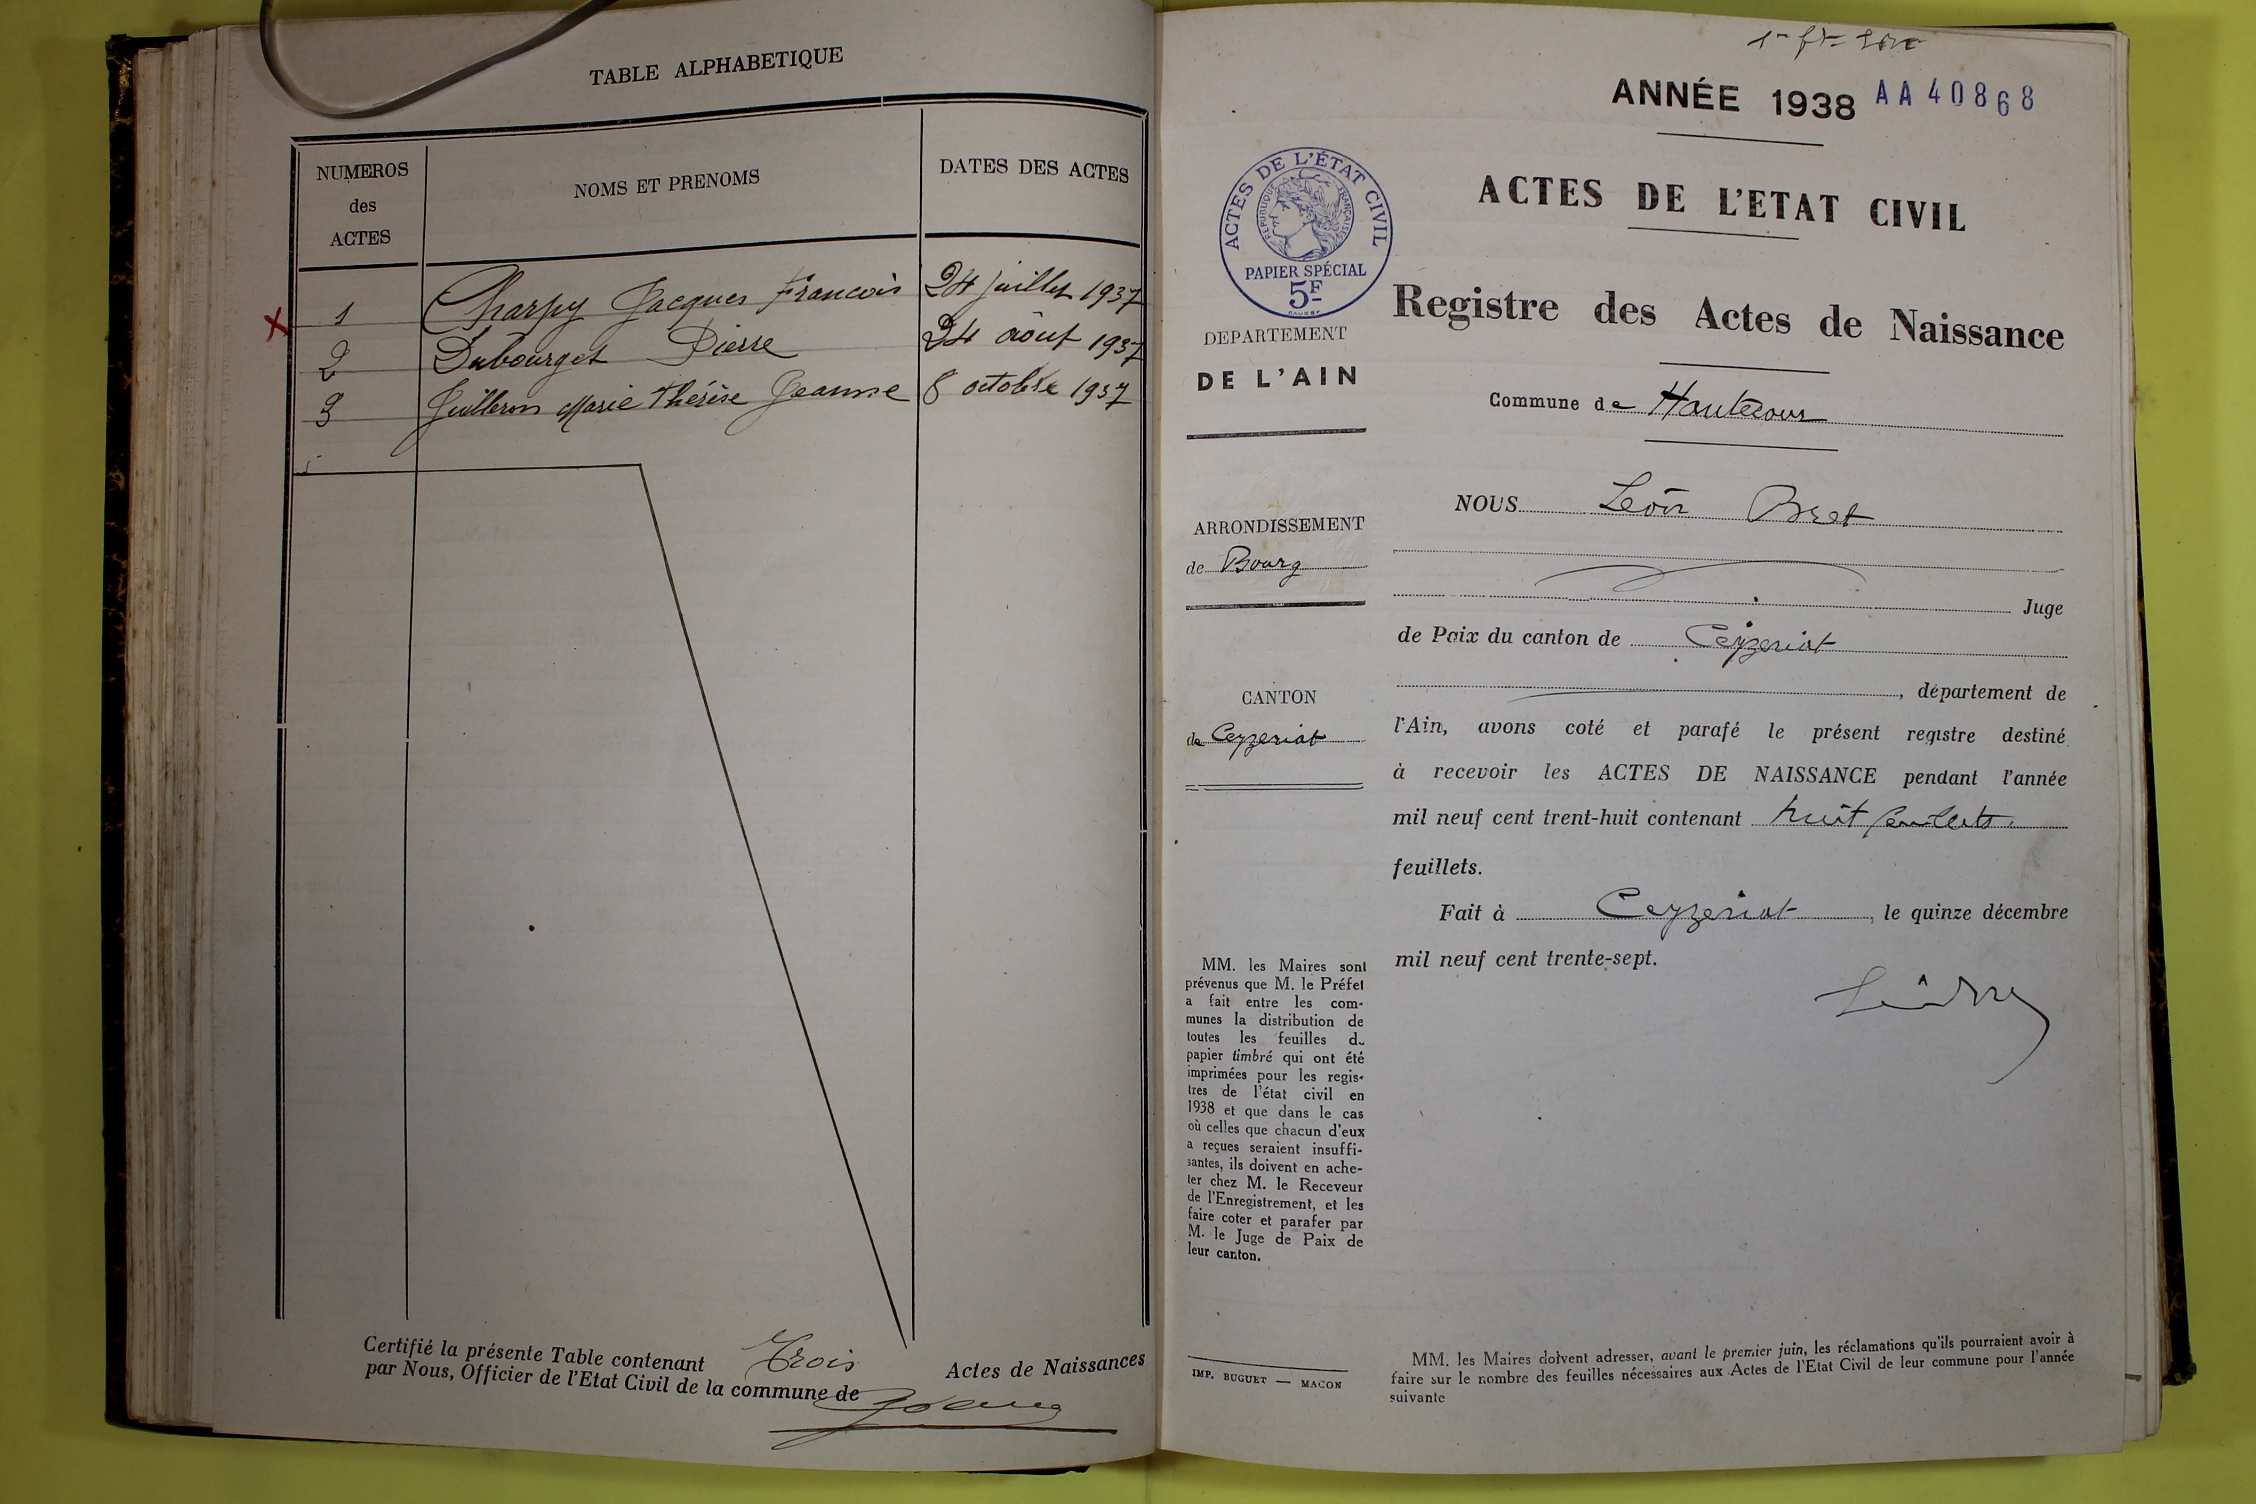 TABLE ALPHABETIQUE
NUMEROS
des
ACTES
NOMS ET PRENOMS
DATES DES ACTES
1 Charpy Jacques François 24 juillet 1937
2 Dubourget Pierre 24 août 1937
3 Guilleron Marie Thérèse Jeanne 8 octobre 1937
Certifié la présente Table contenant Trois Actes de Naissances
par Nous, Officier de l'Etat Civil de la commune de
ANNÉE 1938 AA40868
ACTES DE L'ÉTAT CIVIL
RÉPUBLIQUE FRANÇAISE
PAPIER SPÉCIAL
5F
DEPARTEMENT
DE L'AIN
ARRONDISSEMENT
de Bourg
CANTON
de Ceyzeriat
MM. les Maires sont
prévenus que M. le Préfet
a fait entre les com-
munes la distribution de
toutes les feuilles du
papier timbré qui ont été
imprimées pour les regis-
tres de l'état civil en
1938 et que dans le cas
où celles que chacun d'eux
a reçues seraient insuffi-
santes, ils doivent en ache-
ter chez M. le Receveur
de l'Enregistrement, et les
faire coter et parafer par
M. le Juge de Paix de
leur canton.
IMP. BUGUET — MACON
ACTES DE L'ETAT CIVIL
Registre des Actes de Naissance
Commune de Hautecour
NOUS Léon Bret
Juge
de Paix du canton de Ceyzeriat
, département de
l'Ain, avons coté et parafé le présent registre destiné
à recevoir les ACTES DE NAISSANCE pendant l'année
mil neuf cent trent-huit contenant huit feuillets
feuillets.
Fait à Ceyzeriat, le quinze décembre
mil neuf cent trente-sept.
MM. les Maires doivent adresser, avant le premier juin, les réclamations qu'ils pourraient avoir à
faire sur le nombre des feuilles nécessaires aux Actes de l'Etat Civil de leur commune pour l'année
suivante